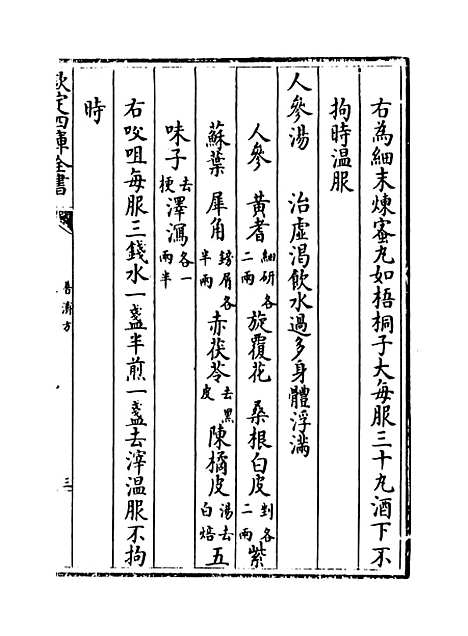 右為細末煉蜜丸如梧桐子大每服三十丸酒下不
拘時温服
人參湯　治虛渴飲水過多身體浮滿
人參　黃耆細研各二兩　旋覆花　桑根白皮剉各二兩　紫
蘇葉　犀角鎊屑各半兩　赤茯苓去黑皮　陳橘皮湯去白焙　五
味子去梗　澤瀉各一兩半
右㕮咀每服三錢水一盞半煎一盞去滓温服不拘
時
欽定四庫全書
普濟方
三